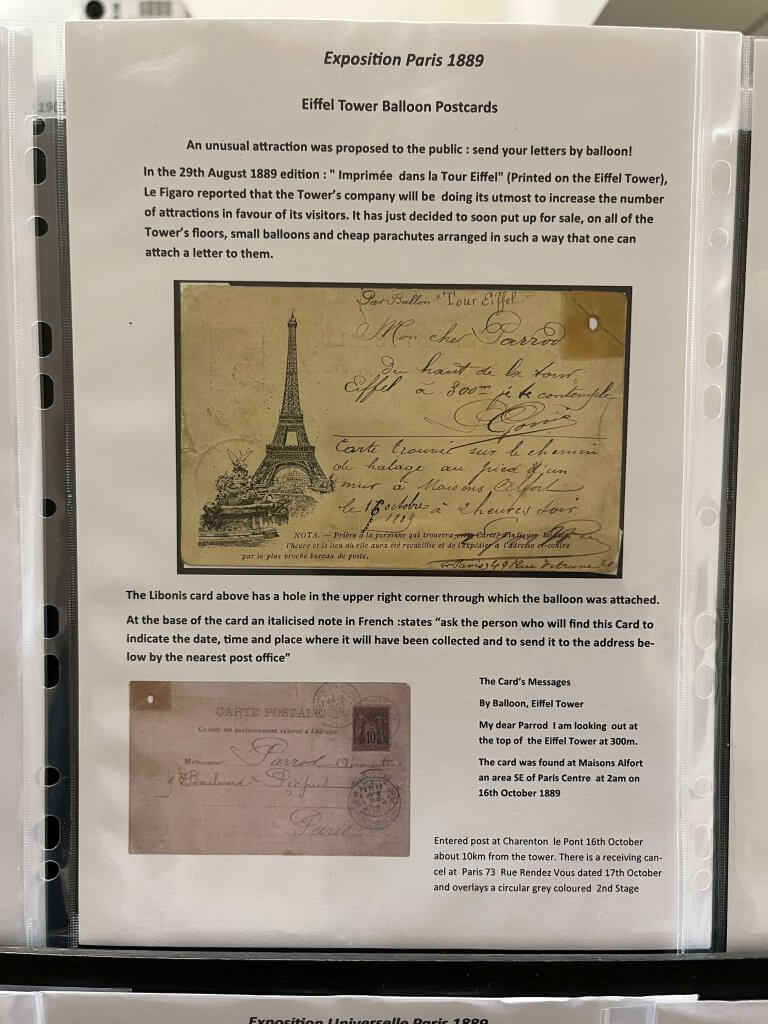 Exposition Paris 1889
Eiffel Tower Balloon Postcards
An unusual attraction was proposed to the public : send your letters by balloon!
In the 29th August 1889 edition : " Imprimée dans la Tour Eiffel" (Printed on the Eiffel Tower),
Le Figaro reported that the Tower's company will be doing its utmost to increase the number
of attractions in favour of its visitors. It has just decided to soon put up for sale, on all of the
Tower's floors, small balloons and cheap parachutes arranged in such a way that one can
attach a letter to them.
Par Ballon "Tour Eiffel."
Mon cher Parrod
du haut de la tour
Eiffel à 300m je te contemple
Carte trouvée sur le chemin
de halage au pied d'un
mur à Maisons Alfort
le 16 octobre à 2 heures soir
1889
NOTA. — Prière à la personne qui trouvera cette Carte, d'indiquer la date,
l'heure et le lieu où elle aura été recueillie et de l'expédier à l'adresse ci-contre
par le plus proche bureau de poste.
(Paris) 49 Rue
The Libonis card above has a hole in the upper right corner through which the balloon was attached.
At the base of the card an italicised note in French :states "ask the person who will find this Card to
indicate the date, time and place where it will have been collected and to send it to the address be-
low by the nearest post office"
CARTE POSTALE
Ce côté est exclusivement réservé à l'adresse.
10
Monsieur Parrod Aéronaute
9 Boulevard Picpus
Paris
The Card's Messages
By Balloon, Eiffel Tower
My dear Parrod I am looking out at
the top of the Eiffel Tower at 300m.
The card was found at Maisons Alfort
an area SE of Paris Centre at 2am on
16th October 1889
Entered post at Charenton le Pont 16th October
about 10km from the tower. There is a receiving can-
cel at Paris 73 Rue Rendez Vous dated 17th October
and overlays a circular grey coloured 2nd Stage
Exposition Universelle Paris 1889